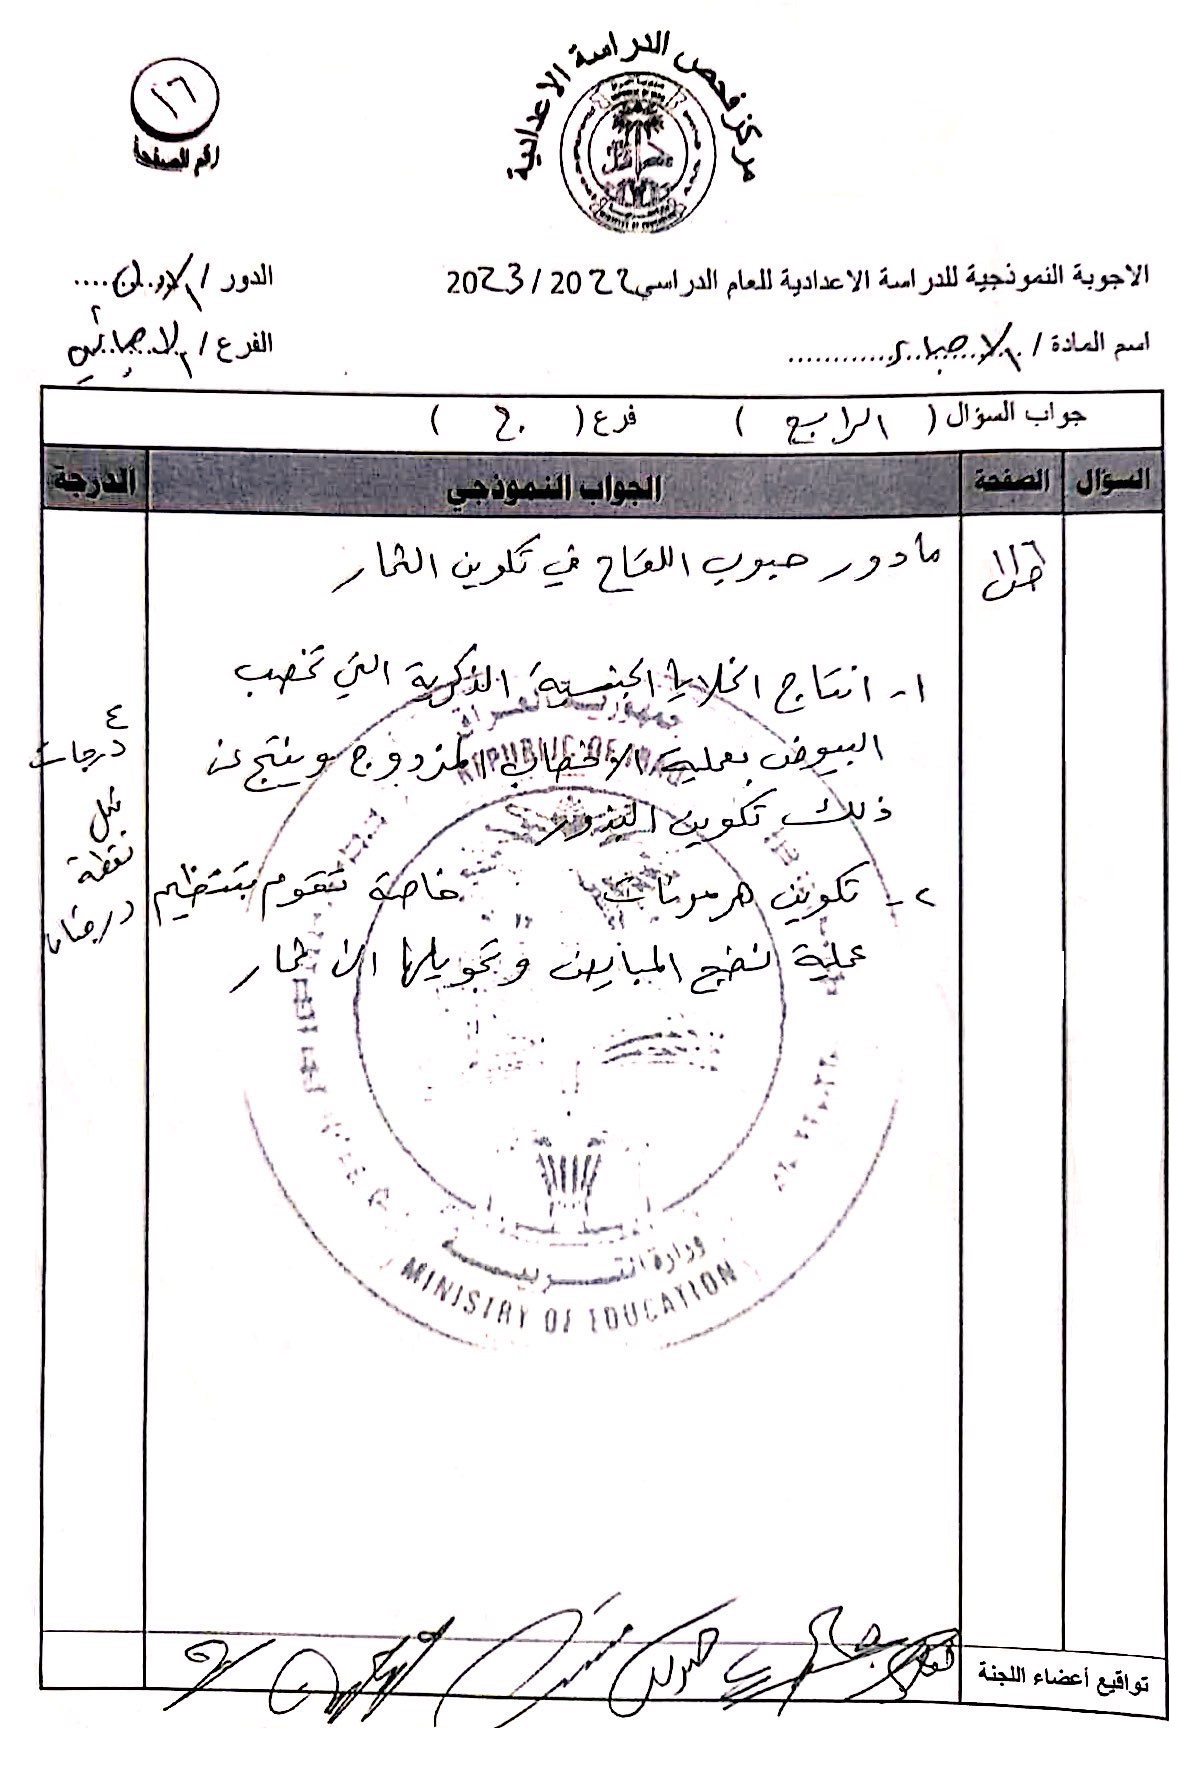 مركز فحص الدراسة الاعدادية
١٦
رقم الصفحة
الاجوبة النموذجية للدراسة الاعدادية للعام الدراسي 2022 / 2023
الدور / الاول
اسم المادة / الاحياء
الفرع / الاحيائي
جواب السؤال ( الرابع ) فرع ( ج )
السؤال
الصفحة
الجواب النموذجي
الدرجة
ص١١٦
مادور حبوب اللقاح في تكوين الثمار
١- انتاج الخلايا الجنسية الذكرية التي تخصب
البيوض بعملية الاخصاب المزدوج وينتج عن
ذلك تكوين البذور
٢- تكوين هرمونات خاصة تقوم بتنظيم
عملية نضج المبايض وتحويلها الى ثمار
٤
درجات
لكل
نقطة
درجتان
جمهورية العراق
REPUBLIC OF IRAQ
وزارة التربية
MINISTRY OF EDUCATION
تواقيع أعضاء اللجنة